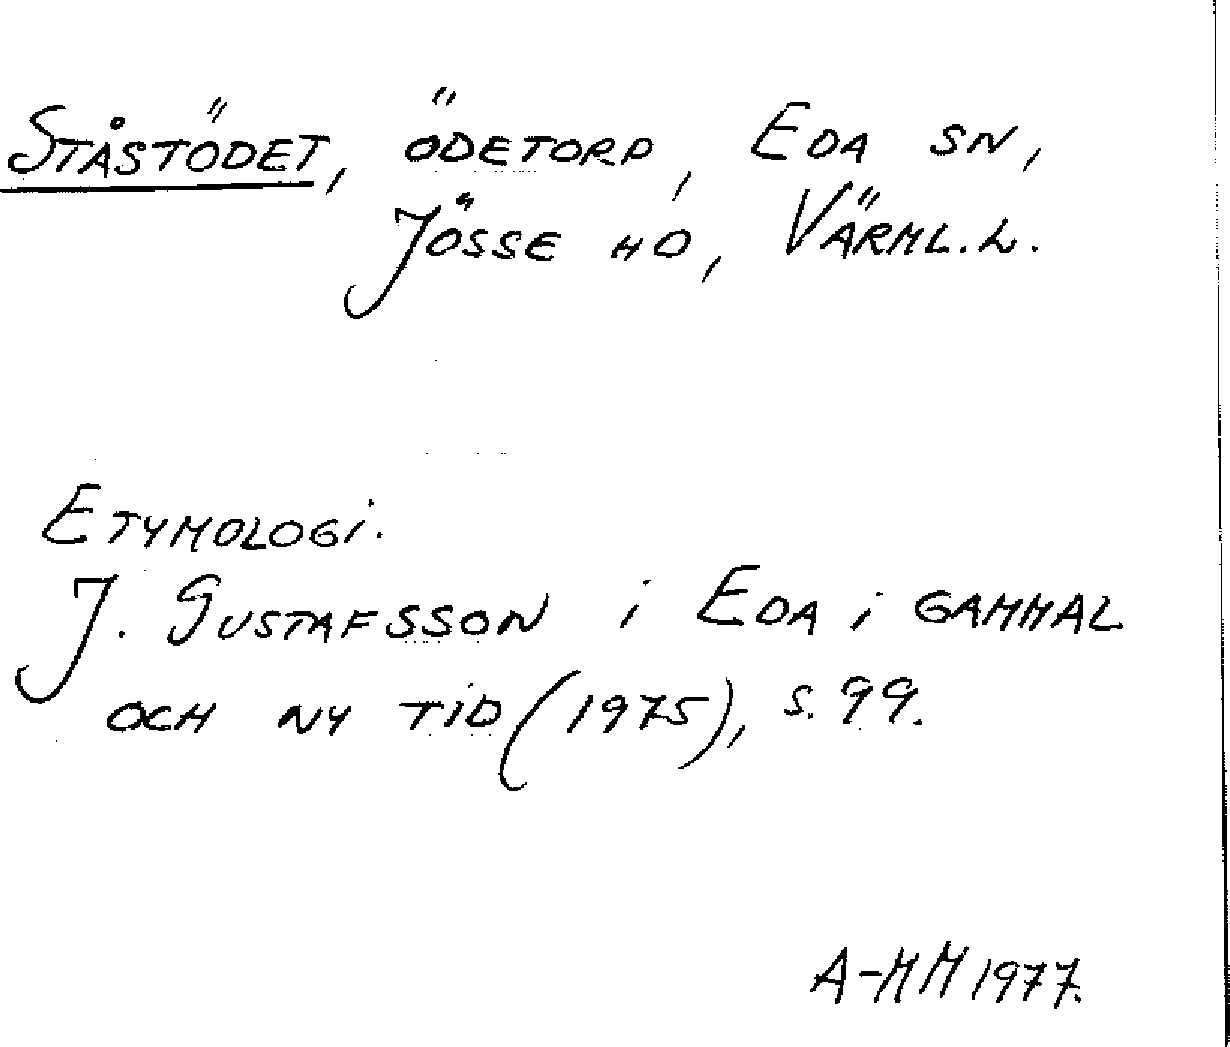 STÅSTÖDET, ÖDETORP, EDA SN,
JÖSSE HD, VÄRML.L.
ETYMOLOGI.
J. GUSTAFSSON i EDA i GAMMAL
OCH NY TID (1975), S. 99.
A-MM 1977.